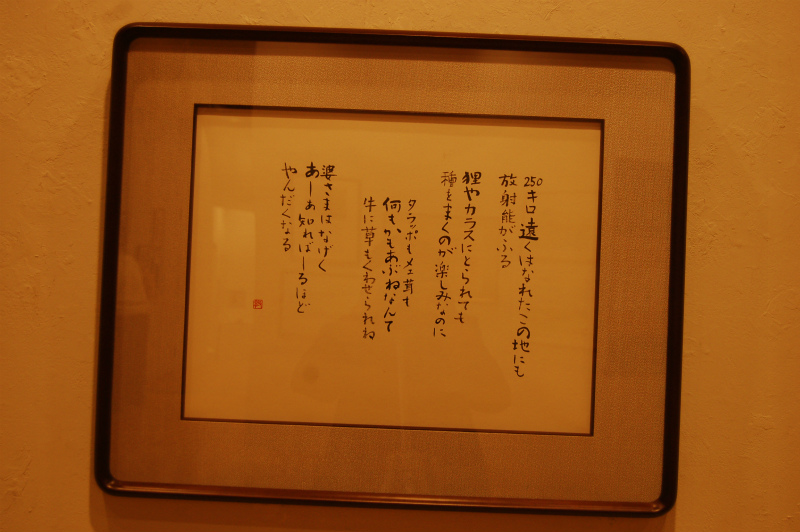 250キロ遠くはなれたこの地にも
放射能がふる
狸やカラスにとられても
種をまくのが楽しみなのに
タラッポもメェ茸も
何もかもあぶねなんて
牛に草もくわせられね
婆さまはなげく
あーあ知ればーるほど
やんだくなる